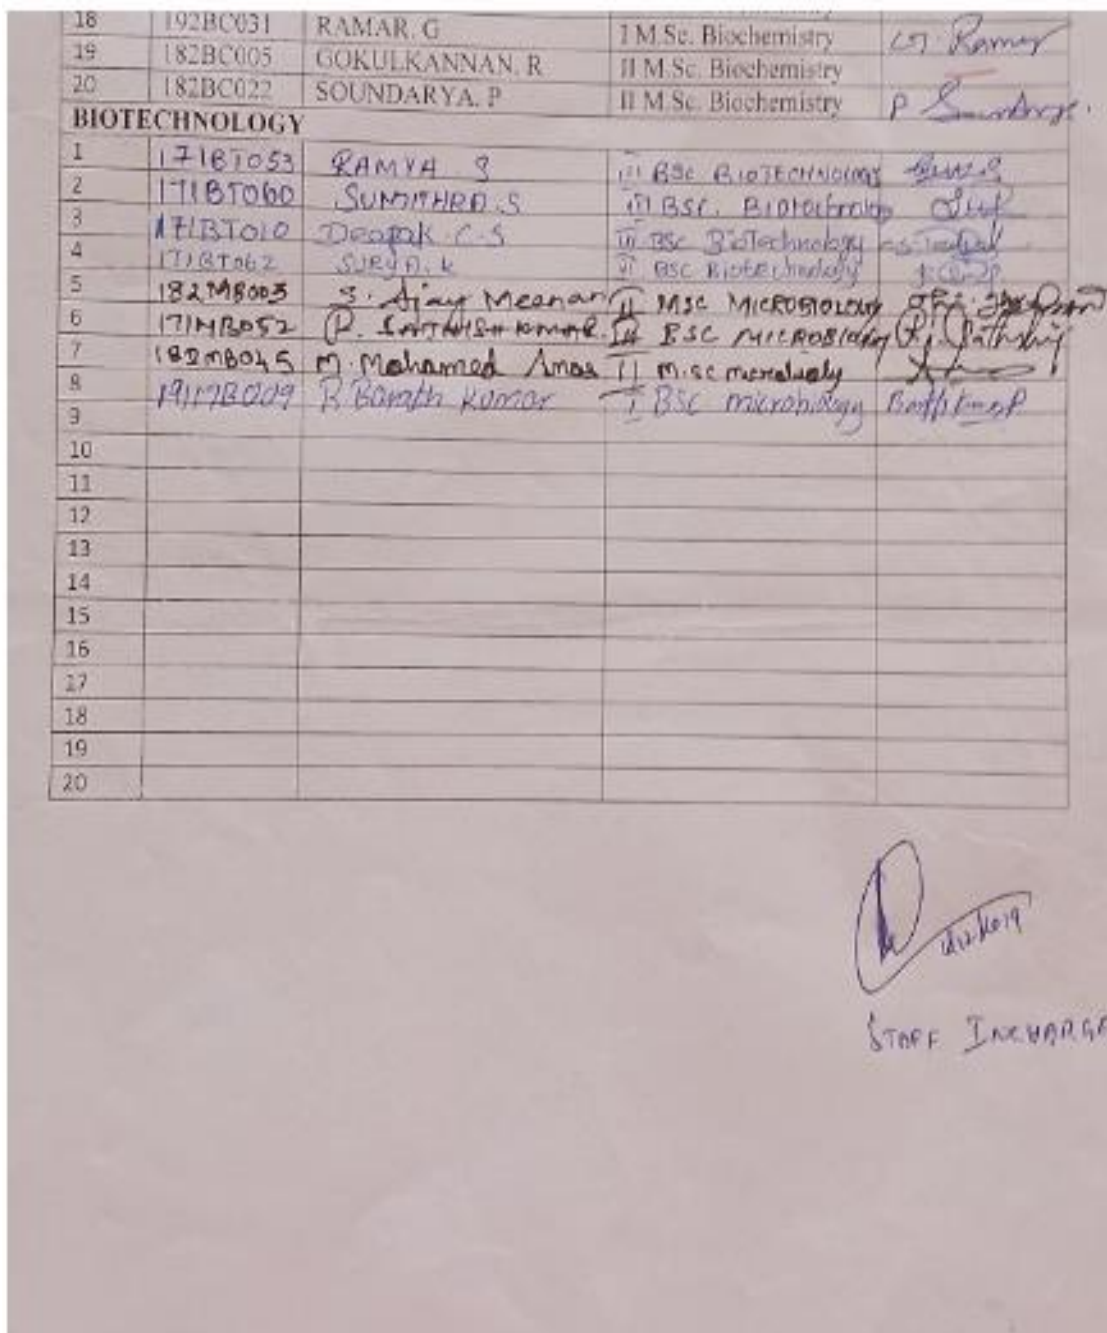 18 192BC031 RAMAR. G I M.Sc. Biochemistry G. Ramar
19 182BC005 GOKULKANNAN. R II M.Sc. Biochemistry
20 182BC022 SOUNDARYA. P II M.Sc. Biochemistry P
BIOTECHNOLOGY
1 171BT053 RAMYA S III BSc BIOTECHNOLOGY
2 171BT060 SUMITHRA.S III BSC. Biotechnology
3 171BT010 Deepak C.S III BSc BioTechnology
4 171BT062 SURYA.K BSC Biotechnology
5 182MB003 S. Ajay Meenan II MSC MICROBIOLOGY
6 171MB052 P. SATHISH KUMAR III BSC MICROBIOLOGY
7 182MB045 M. Mohamed Anas II M.SC
8 191MB009 R Barath Kumar I BSC microbiology
9
10
11
12
13
14
15
16
17
18
19
20
STAFF INCHARGE